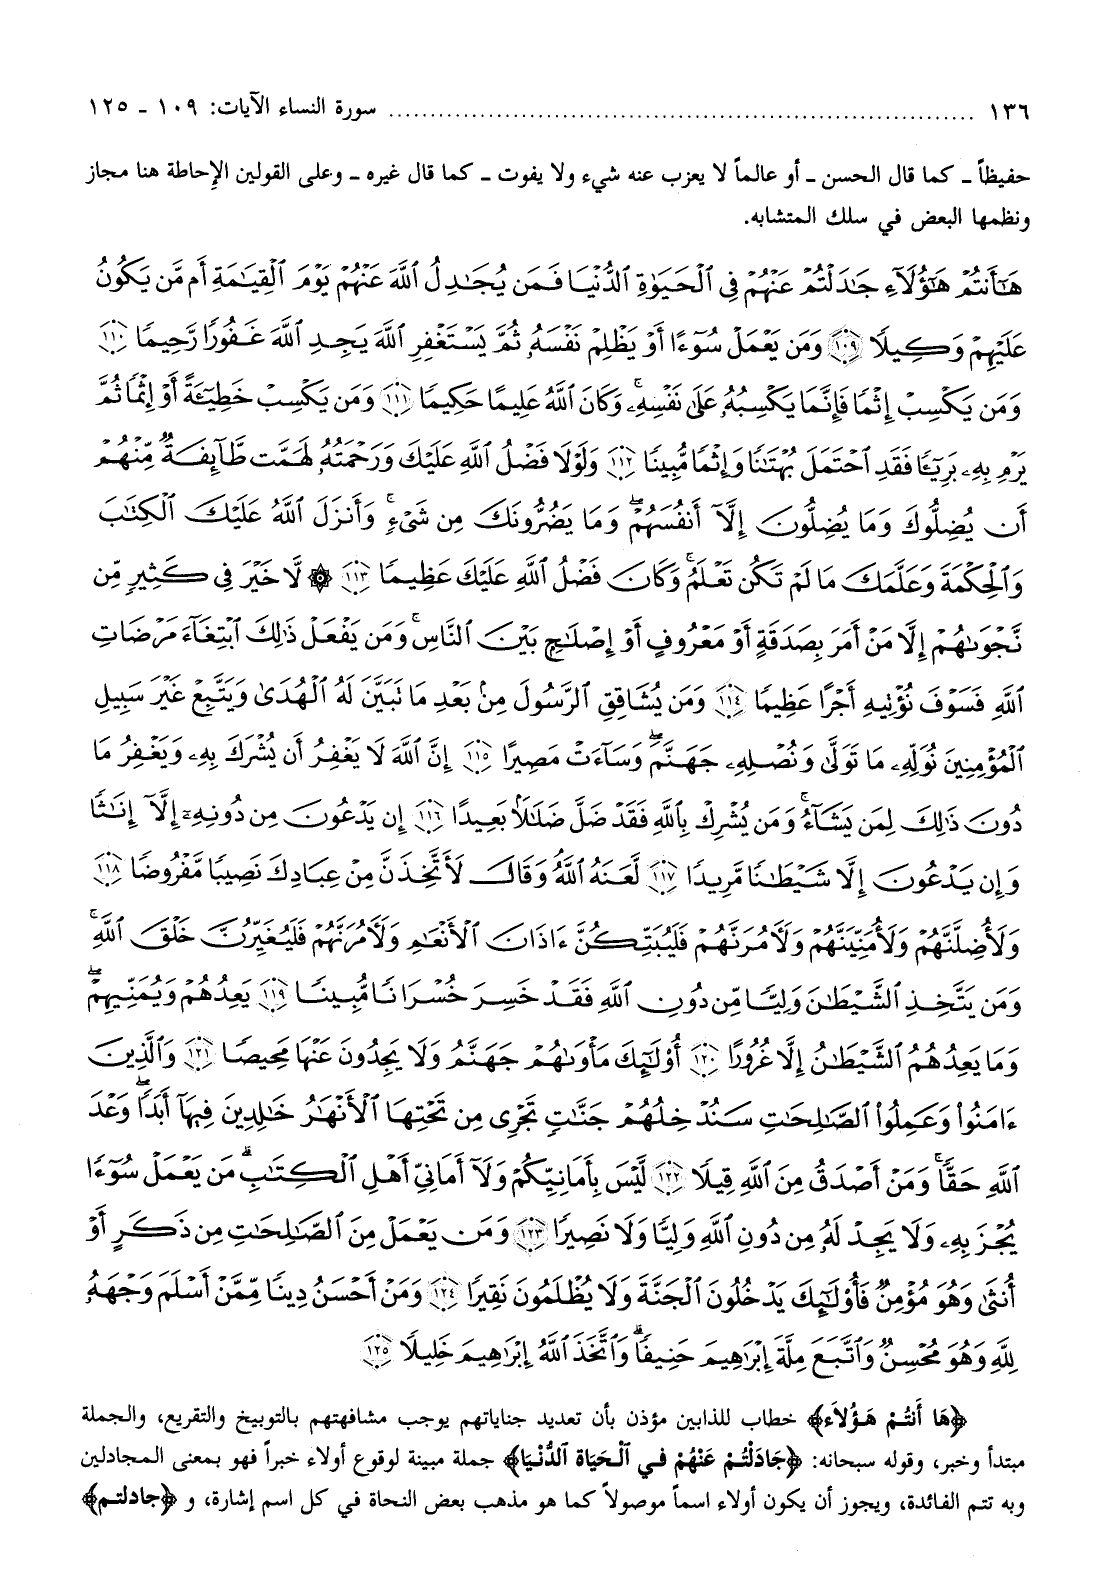 ١٣٦ ........................................................................ سورة النساء الآيات: ١٠٩ ـ ١٢٥
حفيظاً ـ كما قال الحسن ـ أو عالماً لا يعزب عنه شيء ولا يفوت ـ كما قال غيره ـ وعلى القولين الإحاطة هنا مجاز
ونظمها البعض في سلك المتشابه.
هَٰٓأَنتُمْ هَٰٓؤُلَآءِ جَٰدَلْتُمْ عَنْهُمْ فِى ٱلْحَيَوٰةِ ٱلدُّنْيَا فَمَن يُجَٰدِلُ ٱللَّهَ عَنْهُمْ يَوْمَ ٱلْقِيَٰمَةِ أَم مَّن يَكُونُ
عَلَيْهِمْ وَكِيلًا ﴿١٠٩﴾ وَمَن يَعْمَلْ سُوٓءًا أَوْ يَظْلِمْ نَفْسَهُۥ ثُمَّ يَسْتَغْفِرِ ٱللَّهَ يَجِدِ ٱللَّهَ غَفُورًا رَّحِيمًا ﴿١١٠﴾
وَمَن يَكْسِبْ إِثْمًا فَإِنَّمَا يَكْسِبُهُۥ عَلَىٰ نَفْسِهِۦ ۚ وَكَانَ ٱللَّهُ عَلِيمًا حَكِيمًا ﴿١١١﴾ وَمَن يَكْسِبْ خَطِيٓـَٔةً أَوْ إِثْمًا ثُمَّ
يَرْمِ بِهِۦ بَرِيٓـًٔا فَقَدِ ٱحْتَمَلَ بُهْتَٰنًا وَإِثْمًا مُّبِينًا ﴿١١٢﴾ وَلَوْلَا فَضْلُ ٱللَّهِ عَلَيْكَ وَرَحْمَتُهُۥ لَهَمَّت طَّآئِفَةٌ مِّنْهُمْ
أَن يُضِلُّوكَ وَمَا يُضِلُّونَ إِلَّآ أَنفُسَهُمْ ۖ وَمَا يَضُرُّونَكَ مِن شَىْءٍ ۚ وَأَنزَلَ ٱللَّهُ عَلَيْكَ ٱلْكِتَٰبَ
وَٱلْحِكْمَةَ وَعَلَّمَكَ مَا لَمْ تَكُن تَعْلَمُ ۚ وَكَانَ فَضْلُ ٱللَّهِ عَلَيْكَ عَظِيمًا ﴿١١٣﴾ ۞ لَّا خَيْرَ فِى كَثِيرٍ مِّن
نَّجْوَىٰهُمْ إِلَّا مَنْ أَمَرَ بِصَدَقَةٍ أَوْ مَعْرُوفٍ أَوْ إِصْلَٰحٍۭ بَيْنَ ٱلنَّاسِ ۚ وَمَن يَفْعَلْ ذَٰلِكَ ٱبْتِغَآءَ مَرْضَاتِ
ٱللَّهِ فَسَوْفَ نُؤْتِيهِ أَجْرًا عَظِيمًا ﴿١١٤﴾ وَمَن يُشَاقِقِ ٱلرَّسُولَ مِنۢ بَعْدِ مَا تَبَيَّنَ لَهُ ٱلْهُدَىٰ وَيَتَّبِعْ غَيْرَ سَبِيلِ
ٱلْمُؤْمِنِينَ نُوَلِّهِۦ مَا تَوَلَّىٰ وَنُصْلِهِۦ جَهَنَّمَ ۖ وَسَآءَتْ مَصِيرًا ﴿١١٥﴾ إِنَّ ٱللَّهَ لَا يَغْفِرُ أَن يُشْرَكَ بِهِۦ وَيَغْفِرُ مَا
دُونَ ذَٰلِكَ لِمَن يَشَآءُ ۚ وَمَن يُشْرِكْ بِٱللَّهِ فَقَدْ ضَلَّ ضَلَٰلًۢا بَعِيدًا ﴿١١٦﴾ إِن يَدْعُونَ مِن دُونِهِۦٓ إِلَّآ إِنَٰثًا
وَإِن يَدْعُونَ إِلَّا شَيْطَٰنًا مَّرِيدًا ﴿١١٧﴾ لَّعَنَهُ ٱللَّهُ ۘ وَقَالَ لَأَتَّخِذَنَّ مِنْ عِبَادِكَ نَصِيبًا مَّفْرُوضًا ﴿١١٨﴾
وَلَأُضِلَّنَّهُمْ وَلَأُمَنِّيَنَّهُمْ وَلَءَامُرَنَّهُمْ فَلَيُبَتِّكُنَّ ءَاذَانَ ٱلْأَنْعَٰمِ وَلَءَامُرَنَّهُمْ فَلَيُغَيِّرُنَّ خَلْقَ ٱللَّهِ ۚ
وَمَن يَتَّخِذِ ٱلشَّيْطَٰنَ وَلِيًّا مِّن دُونِ ٱللَّهِ فَقَدْ خَسِرَ خُسْرَانًا مُّبِينًا ﴿١١٩﴾ يَعِدُهُمْ وَيُمَنِّيهِمْ ۖ
وَمَا يَعِدُهُمُ ٱلشَّيْطَٰنُ إِلَّا غُرُورًا ﴿١٢٠﴾ أُو۟لَٰٓئِكَ مَأْوَىٰهُمْ جَهَنَّمُ وَلَا يَجِدُونَ عَنْهَا مَحِيصًا ﴿١٢١﴾ وَٱلَّذِينَ
ءَامَنُوا۟ وَعَمِلُوا۟ ٱلصَّٰلِحَٰتِ سَنُدْخِلُهُمْ جَنَّٰتٍ تَجْرِى مِن تَحْتِهَا ٱلْأَنْهَٰرُ خَٰلِدِينَ فِيهَآ أَبَدًا ۖ وَعْدَ
ٱللَّهِ حَقًّا ۚ وَمَنْ أَصْدَقُ مِنَ ٱللَّهِ قِيلًا ﴿١٢٢﴾ لَّيْسَ بِأَمَانِيِّكُمْ وَلَآ أَمَانِىِّ أَهْلِ ٱلْكِتَٰبِ ۗ مَن يَعْمَلْ سُوٓءًا
يُجْزَ بِهِۦ وَلَا يَجِدْ لَهُۥ مِن دُونِ ٱللَّهِ وَلِيًّا وَلَا نَصِيرًا ﴿١٢٣﴾ وَمَن يَعْمَلْ مِنَ ٱلصَّٰلِحَٰتِ مِن ذَكَرٍ أَوْ
أُنثَىٰ وَهُوَ مُؤْمِنٌ فَأُو۟لَٰٓئِكَ يَدْخُلُونَ ٱلْجَنَّةَ وَلَا يُظْلَمُونَ نَقِيرًا ﴿١٢٤﴾ وَمَنْ أَحْسَنُ دِينًا مِّمَّنْ أَسْلَمَ وَجْهَهُۥ
لِلَّهِ وَهُوَ مُحْسِنٌ وَٱتَّبَعَ مِلَّةَ إِبْرَٰهِيمَ حَنِيفًا ۗ وَٱتَّخَذَ ٱللَّهُ إِبْرَٰهِيمَ خَلِيلًا ﴿١٢٥﴾
﴿هَا أَنْتُمْ هَؤُلاَءِ﴾ خطاب للذابين مؤذن بأن تعديد جناياتهم يوجب مشافهتهم بالتوبيخ والتقريع، والجملة
مبتدأ وخبر، وقوله سبحانه: ﴿جَادَلْتُمْ عَنْهُمْ في ٱلْحَيَاة ٱلدُّنْيَا﴾ جملة مبينة لوقوع أولاء خبراً فهو بمعنى المجادلين
وبه تتم الفائدة، ويجوز أن يكون أولاء اسماً موصولاً كما هو مذهب بعض النحاة في كل اسم إشارة، و ﴿جادلتم﴾